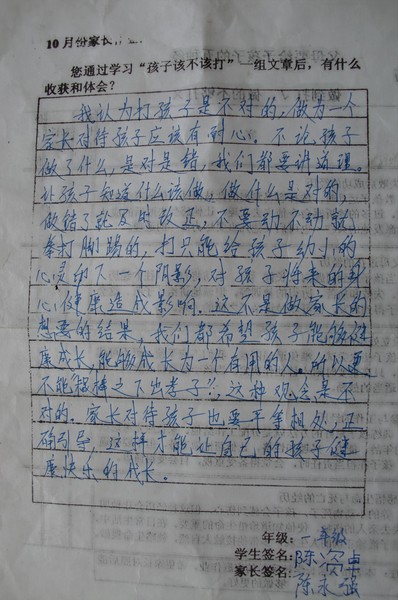 10月份家长
您通过学习“孩子该不该打”一组文章后，有什么
收获和体会？
我认为打孩子是不对的，做为一个
家长对待孩子应该有耐心。不论孩子
做了什么，是对是错，我们都要讲道理。
让孩子知道什么该做，做什么是对的，
做错了就及时改正，不要动不动就
拳打脚踢的，打只能给孩子幼小的
心灵印下一个阴影，对孩子将来的身
心健康造成影响。这不是做家长的
想要的结果，我们都希望孩子能够健
康成长，能够成长为一个有用的人。所以要
不能“棍棒之下出孝子”，这种观念是不
对的。家长对待孩子也要平等相处，正
确引导，这样才能让自己的孩子健
康快乐的成长。
年级：一年级
学生签名：陈资卓
家长签名：陈永强